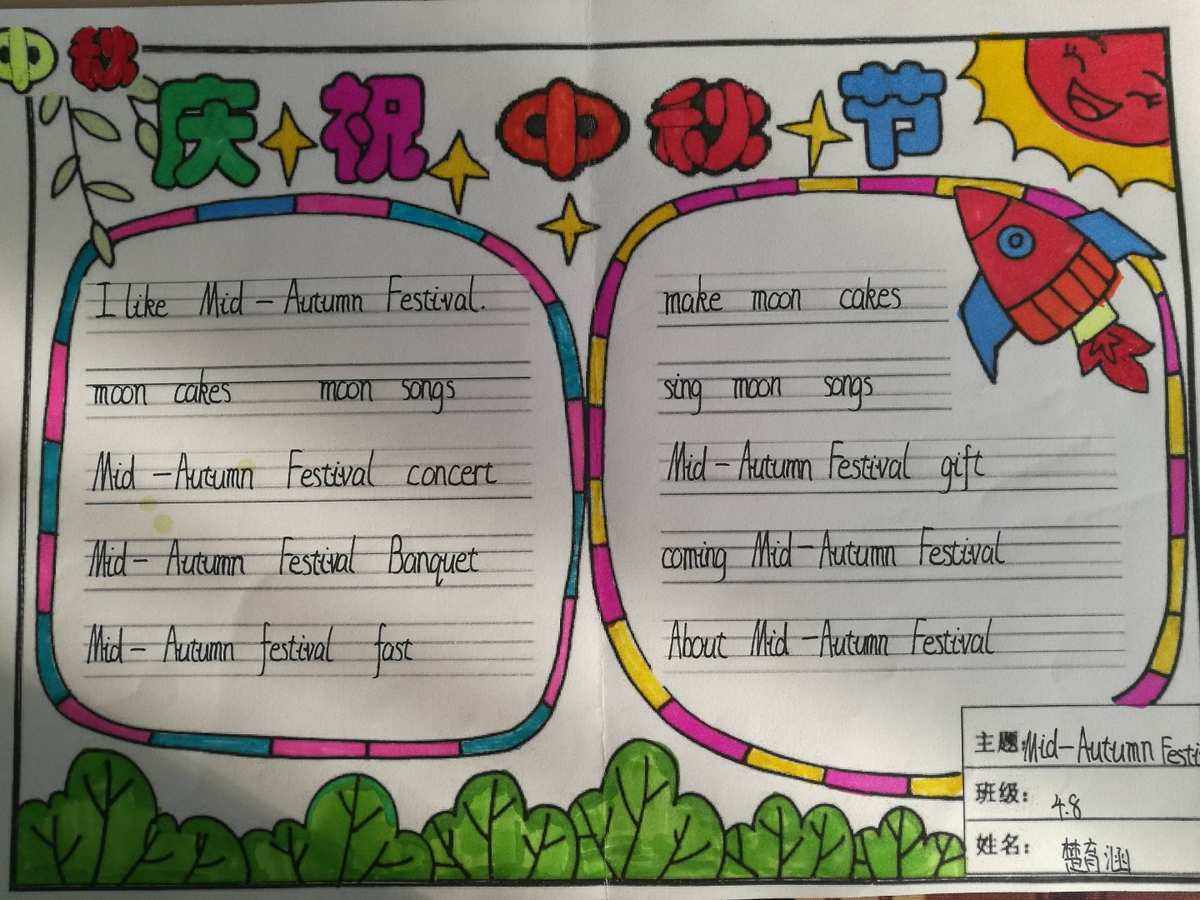 中秋
庆祝中秋节
I like Mid-Autumn Festival.
moon cakes moon songs
Mid-Autumn Festival concert
Mid-Autumn Festival Banquet
Mid-Autumn festival fast
make moon cakes
sing moon songs
Mid-Autumn Festival gift
coming Mid-Autumn Festival
About Mid-Autumn Festival
主题: Mid-Autumn Festi
班级: 4.8
姓名: 楚育涵